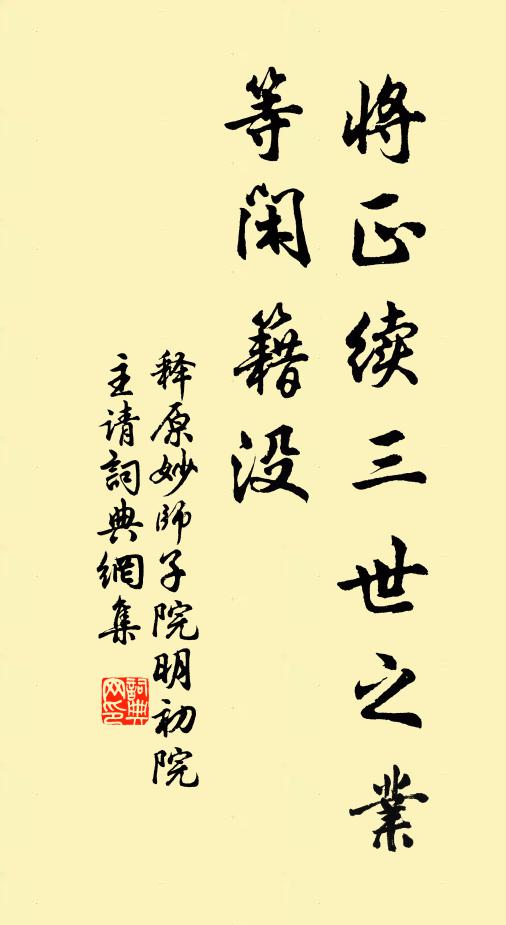 将正续三世之業
等闲籍没
释原妙師子院明初院
主请詞典網集
詞典
网印